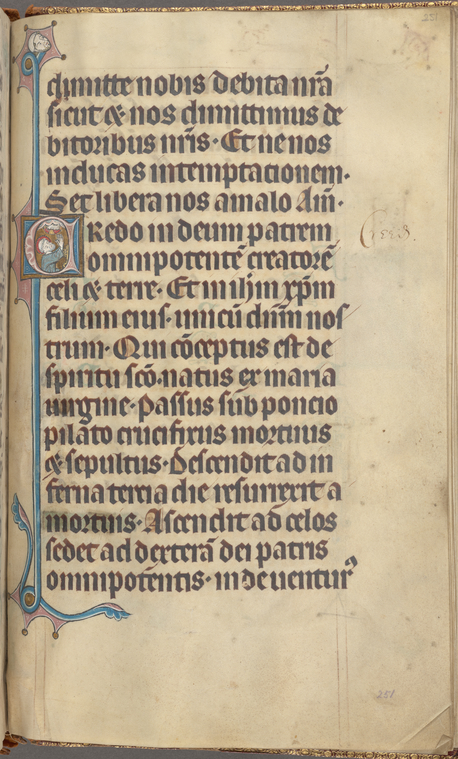 dimitte nobis debita nr̃a
sicut & nos dimittimus de
bitoribus nr̃is· Et ne nos
inducas in temptationem·
Set libera nos a malo Am̃·
Credo in deum patrem
omnipotentẽ creatorẽ
celi & terre· Et in ihm̃ xp̃m
filium eius· unicũ dnm̃ nos
trum· Qui cõceptus est de
spiritu sc̃o· natus ex maria
uirgine· Passus sub poncio
pilato crucifixus mortuus
& sepultus· Descendit ad in
ferna tercia die resurrexit a
mortuis· Ascendit ad celos
sedet ad dexterã dei patris
omnipotentis· inde uentur᷒
Creed.
251